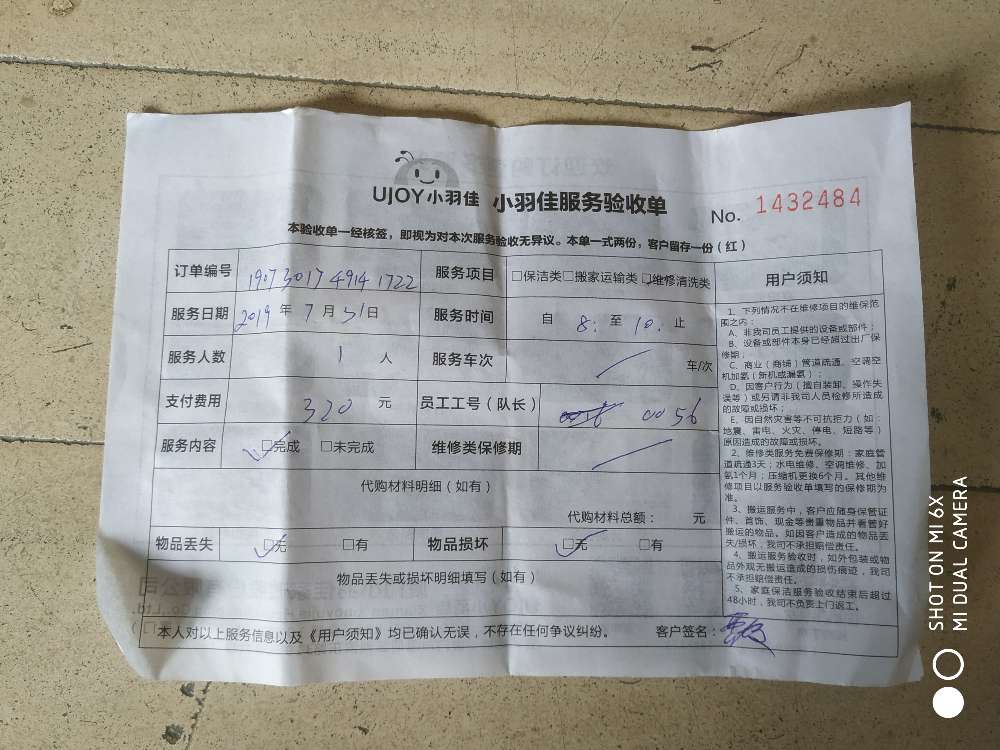 UJOY小羽佳 小羽佳服务验收单 No. 1432484
本验收单一经核签，即视为对本次服务验收无异议。本单一式两份，客户留存一份（红）
订单编号 19073017 4914 1722 服务项目 □保洁类□搬家运输类□维修清洗类
服务日期 2019 年 7 月 31日 服务时间 自 8: 至 10: 止
服务人数 1 人 服务车次 车/次
支付费用 320 元 员工工号（队长） 0056
服务内容 □完成 □未完成 维修类保修期
代购材料明细（如有）
代购材料总额： 元
物品丢失 □无 □有 物品损坏 □无 □有
物品丢失或损坏明细填写（如有）
□本人对以上服务信息以及《用户须知》均已确认无误，不存在任何争议纠纷。 客户签名：
用户须知
1、下列情况不在维修项目的维保范
围之内：
A、非我司员工提供的设备或部件；
B、设备或部件本身已经超过出厂保
修期；
C、商业（商铺）管道疏通、空调空
机加氨（新机或漏氨）；
D、因客户行为（擅自装卸、操作失
误等）或另请非我司人员检修所造成
的故障或损坏；
E、因自然灾害等不可抗拒力（如：
地震、雷电、火灾、停电、短路等）
原因造成的故障或损坏。
2、维修类服务免费保修期：家庭管
道疏通3天；水电维修、空调维修、加
氨1个月；压缩机更换6个月。其他维
修项目以服务验收单填写的保修期为
准。
3、搬运服务中，客户应随身保管证
件、首饰、现金等贵重物品并看管好
搬运的物品。如因客户造成的物品丢
失/损坏，我司不承担赔偿责任。
4、搬运服务验收时，如外包装或物
品外观无搬运造成的损伤痕迹，我司
不承担赔偿责任。
5、家庭保洁服务验收结束后超过
48小时，我司不负责上门返工。
SHOT ON MI 6X
MI DUAL CAMERA